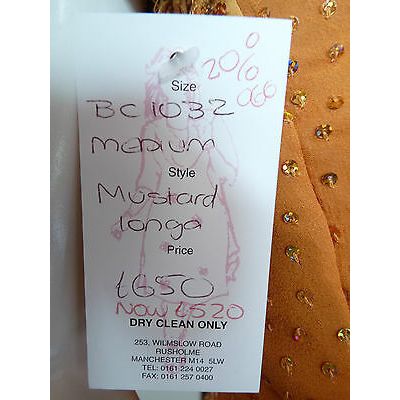 Size
20%
OFF
BC1032
medium
Style
Mustard
longa
Price
£650
NOW £520
DRY CLEAN ONLY
253, WILMSLOW ROAD
RUSHOLME
MANCHESTER M14 5LW
TEL: 0161 224 0027
FAX: 0161 257 0400